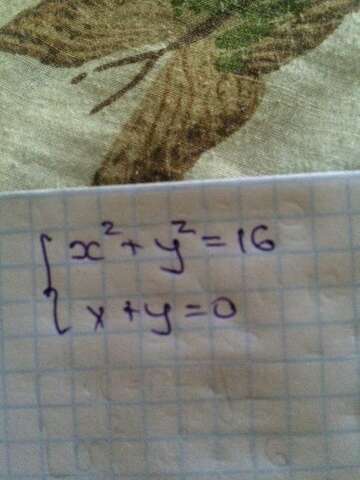 x² + y² = 16
x + y = 0